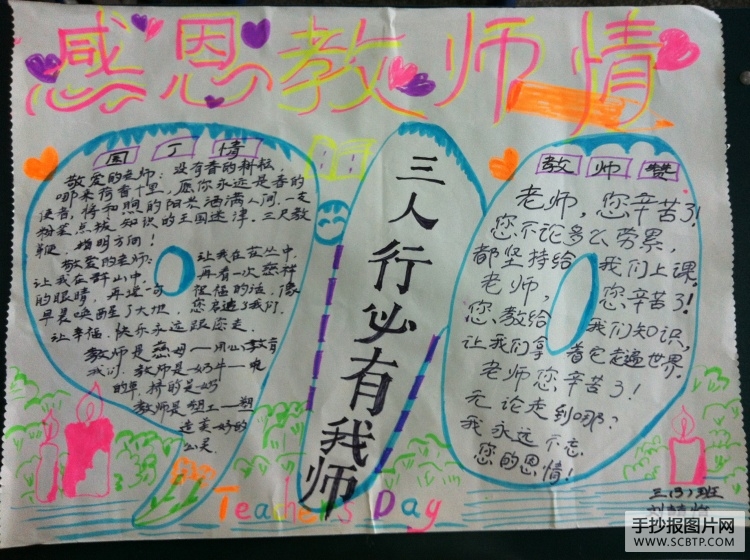 感恩教师情
园丁情
敬爱的老师：没有春的耕耘，
哪来荷香十里，愿你永远是春的
使者，将和煦的阳光洒满人间。一支
粉笔点拨知识的王国迷津，三尺教
鞭，指明方向！
敬爱的老师：让我在茫茫中，
让我在群山中，再看一次您样
的眼睛，再送一句祝福的话，像
早晨唤醒了大地，您召选了我们，
让幸福、快乐永远跟您走。
教师是慈母一用心教育
我们 教师是奶牛一吃
的草，挤的是奶
教师是塑工一塑
造美好的
心灵
三人行必有我师
教师赞
老师，您辛苦了！
您不论多么劳累，
都坚持给我们上课。
老师，您辛苦了！
您教给我们知识，
让我们拿着它走遍世界。
老师您辛苦了！
无论走到哪？
我永远不忘
您的恩情！
Teacher's Day
三(3)班
手抄报图片网
WWW.SCBTP.COM